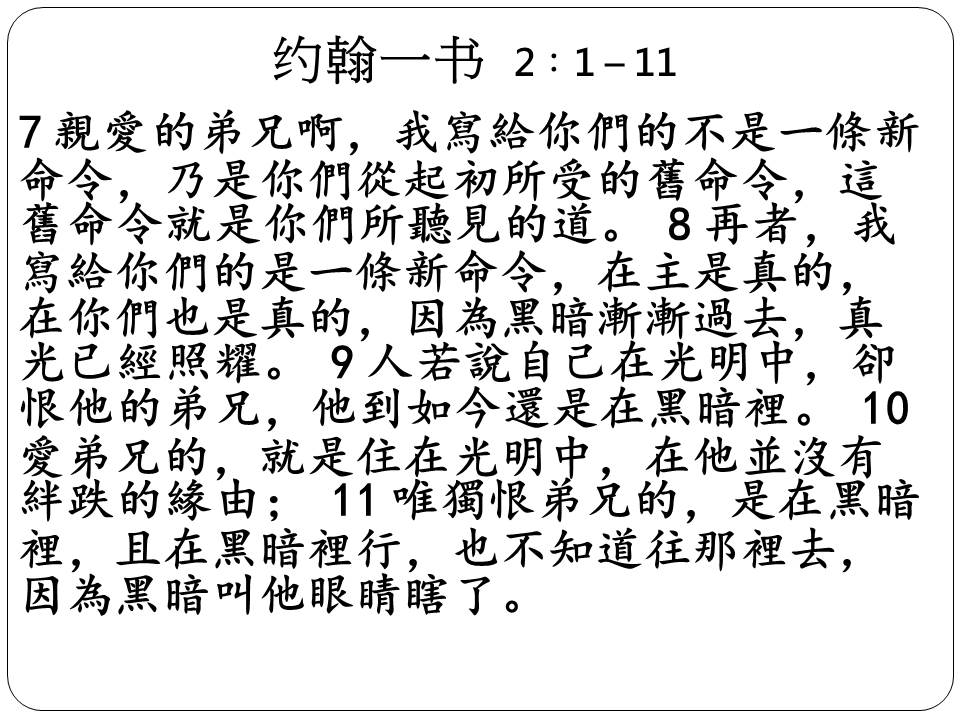 约翰一书 2：1 – 11
7 親愛的弟兄啊，我寫給你們的不是一條新
命令，乃是你們從起初所受的舊命令，這
舊命令就是你們所聽見的道。 8 再者，我
寫給你們的是一條新命令，在主是真的，
在你們也是真的，因為黑暗漸漸過去，真
光已經照耀。 9 人若說自己在光明中，卻
恨他的弟兄，他到如今還是在黑暗裡。 10
愛弟兄的，就是住在光明中，在他並沒有
絆跌的緣由； 11 唯獨恨弟兄的，是在黑暗
裡，且在黑暗裡行，也不知道往那裡去，
因為黑暗叫他眼睛瞎了。